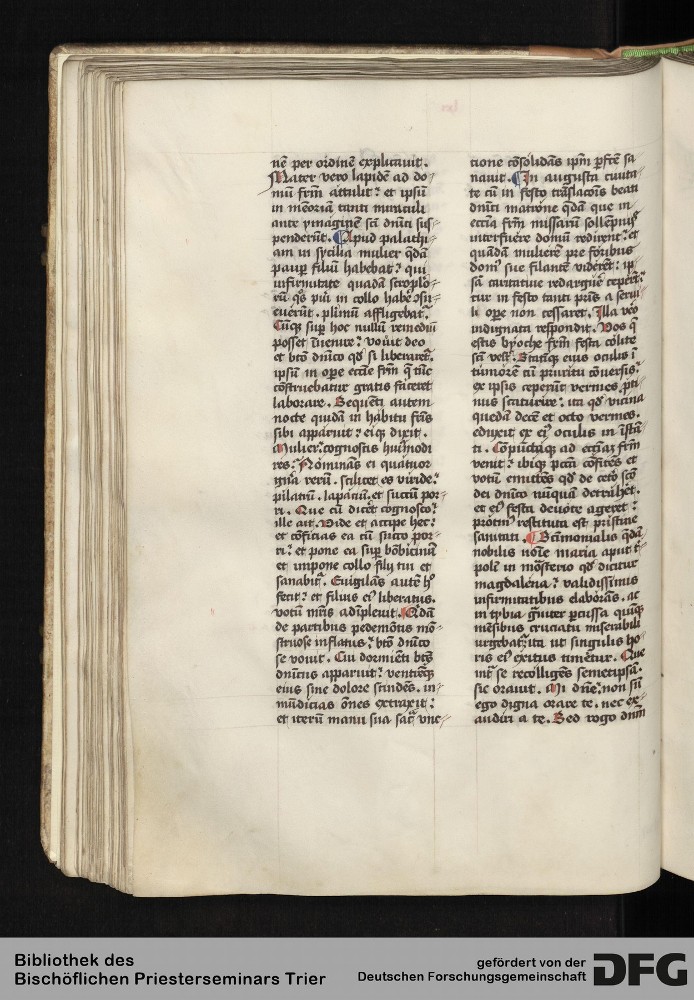 nē per ordinē explicauit.
Mater vero lapidē ad do⸗
mū frm̄ attulit ꝛ et ipsū
in mēoriam tanti miraculi
ante ymaginem scī dnīci sus⸗
penderūt. Apud palathi⸗
am in sycilia mulier qdā
paupꝑ filiū habebat ꝛ qui
infirmitate quadā scroplo⸗
rū in collo
euerūt. plimū affligebat.
Cūqꝫ suꝑ hoc nullū remediū
posset īuenire ꝛ vouit deo
et bt̄o dnīco qd̓ si liberaret
ipsū in oꝑe eccīe frm̄ q̄ tūc
cōstruebatur gratis faceret
laborare. Sequēti autem
nocte quidā in habitu frīs
sibi apparuit ꝛ eiqꝫ dixit.
Mulier. cognoscis huiꝰmodi
res ꝛ Nōminās ei quatuor
gn̄a rerū. scilicet es viride ꝛ
pilatrū. lapaciū. et succū por⸗
ri. Que cū dicēt cognosco ꝛ
ille ait. Vide et accipe hec ꝛ
et cōficias ea cū succo por⸗
ri ꝛ et pone ea suꝑ bōbicinā
et impone collo filij tui et
sanabit̄. Euigilās autē h̓
fecit ꝛ et filius eiꝰ liberatus.
votū mr̄is adīpleuit. Qdā
de partibus pedemōtis mō⸗
struose inflatus ꝛ bt̄o dnīco
se vouit. Cui dormiēti bt̄s
dnīcus apparuit ꝛ ventrēqꝫ
eius sine dolore scindēs. in⸗
mūdicias ōnes extraxit ꝛ
et iterū manu sua sac̄ vnc⸗
tione cōsolidās ipm̄ ꝑfc̄e sa
nauit. In augusta ciuita⸗
te cū in festo trāslacōis beati
dnīci matrone qdā que in
eccīa frm̄ missarū sollēpnijs
interfuere domū redirent ꝛ et
quādā mulierē pre foribus
domꝰ sue filantē viderēt ꝛ ip⸗
sā caritatiue redarguē ceperūt ꝛ
cur in festo tanti pr̄is a serui⸗
li oꝑe non cessaret. Illa v̓o
indignata respondit. Vos q̄
estis byoche frm̄ festū colite
scī vestri. Statiqꝫ eius oculis ī
tumorē cū pruritu cōuersis ꝛ
ex ipsis ceperūt vermes ꝓti⸗
nus scaturire ꝛ ita qd̓ vicina
quedā decē et octo vermes.
eduxit ex eiꝰ oculis in īstā⸗
ti. Cōpūctaqꝫ ad eccīaꝫ frm̄
venit ꝛ ibiqꝫ pcc̄a cōfitēs et
votū emittēs qd̓ de cet̓o scō
dei dnīco nūquā detrahet.
et eiꝰ festa deuote ageret ꝛ
protinꝰ restituta est pristine
sanitati. Scīmonialis qdā
nobilis noīe maria aput t̓⸗
pol̓ in mōsterio qd̓ dicitur
magdalēna ꝛ validissimis
infirmitatibus elaborās. ac
in tybia gͣuiter percussa quīqꝫ
mēsibus cruciatu miserabili
urgebat̄ ꝛ ita ut singulis ho
ris eiꝰ exitus timētur. Que
int̄ se recolligēs semetipsā.
sic orauit. Mi dn̄e ꝛ non sū
ego digna orare te. nec ex⸗
audiri a te. Sed rogo dnm̄
Bibliothek des
Bischöflichen Priesterseminars Trier
gefördert von der
Deutschen Forschungsgemeinschaft
DFG